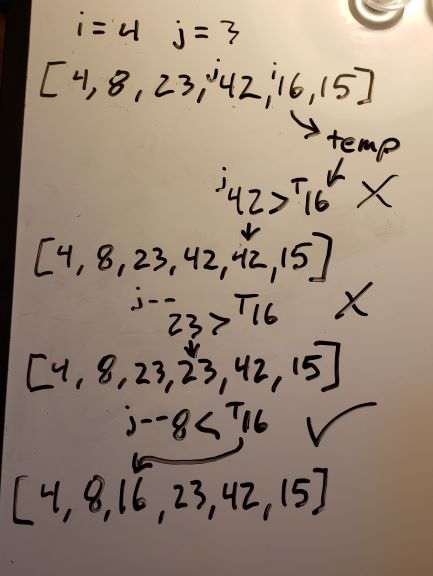 i=4 j=3
[4,8,23,j42,i16,15]
temp
j42>T16 X
[4,8,23,42,42,15]
j--
23>T16 X
[4,8,23,23,42,15]
j--8<T16 ✓
[4,8,16,23,42,15]